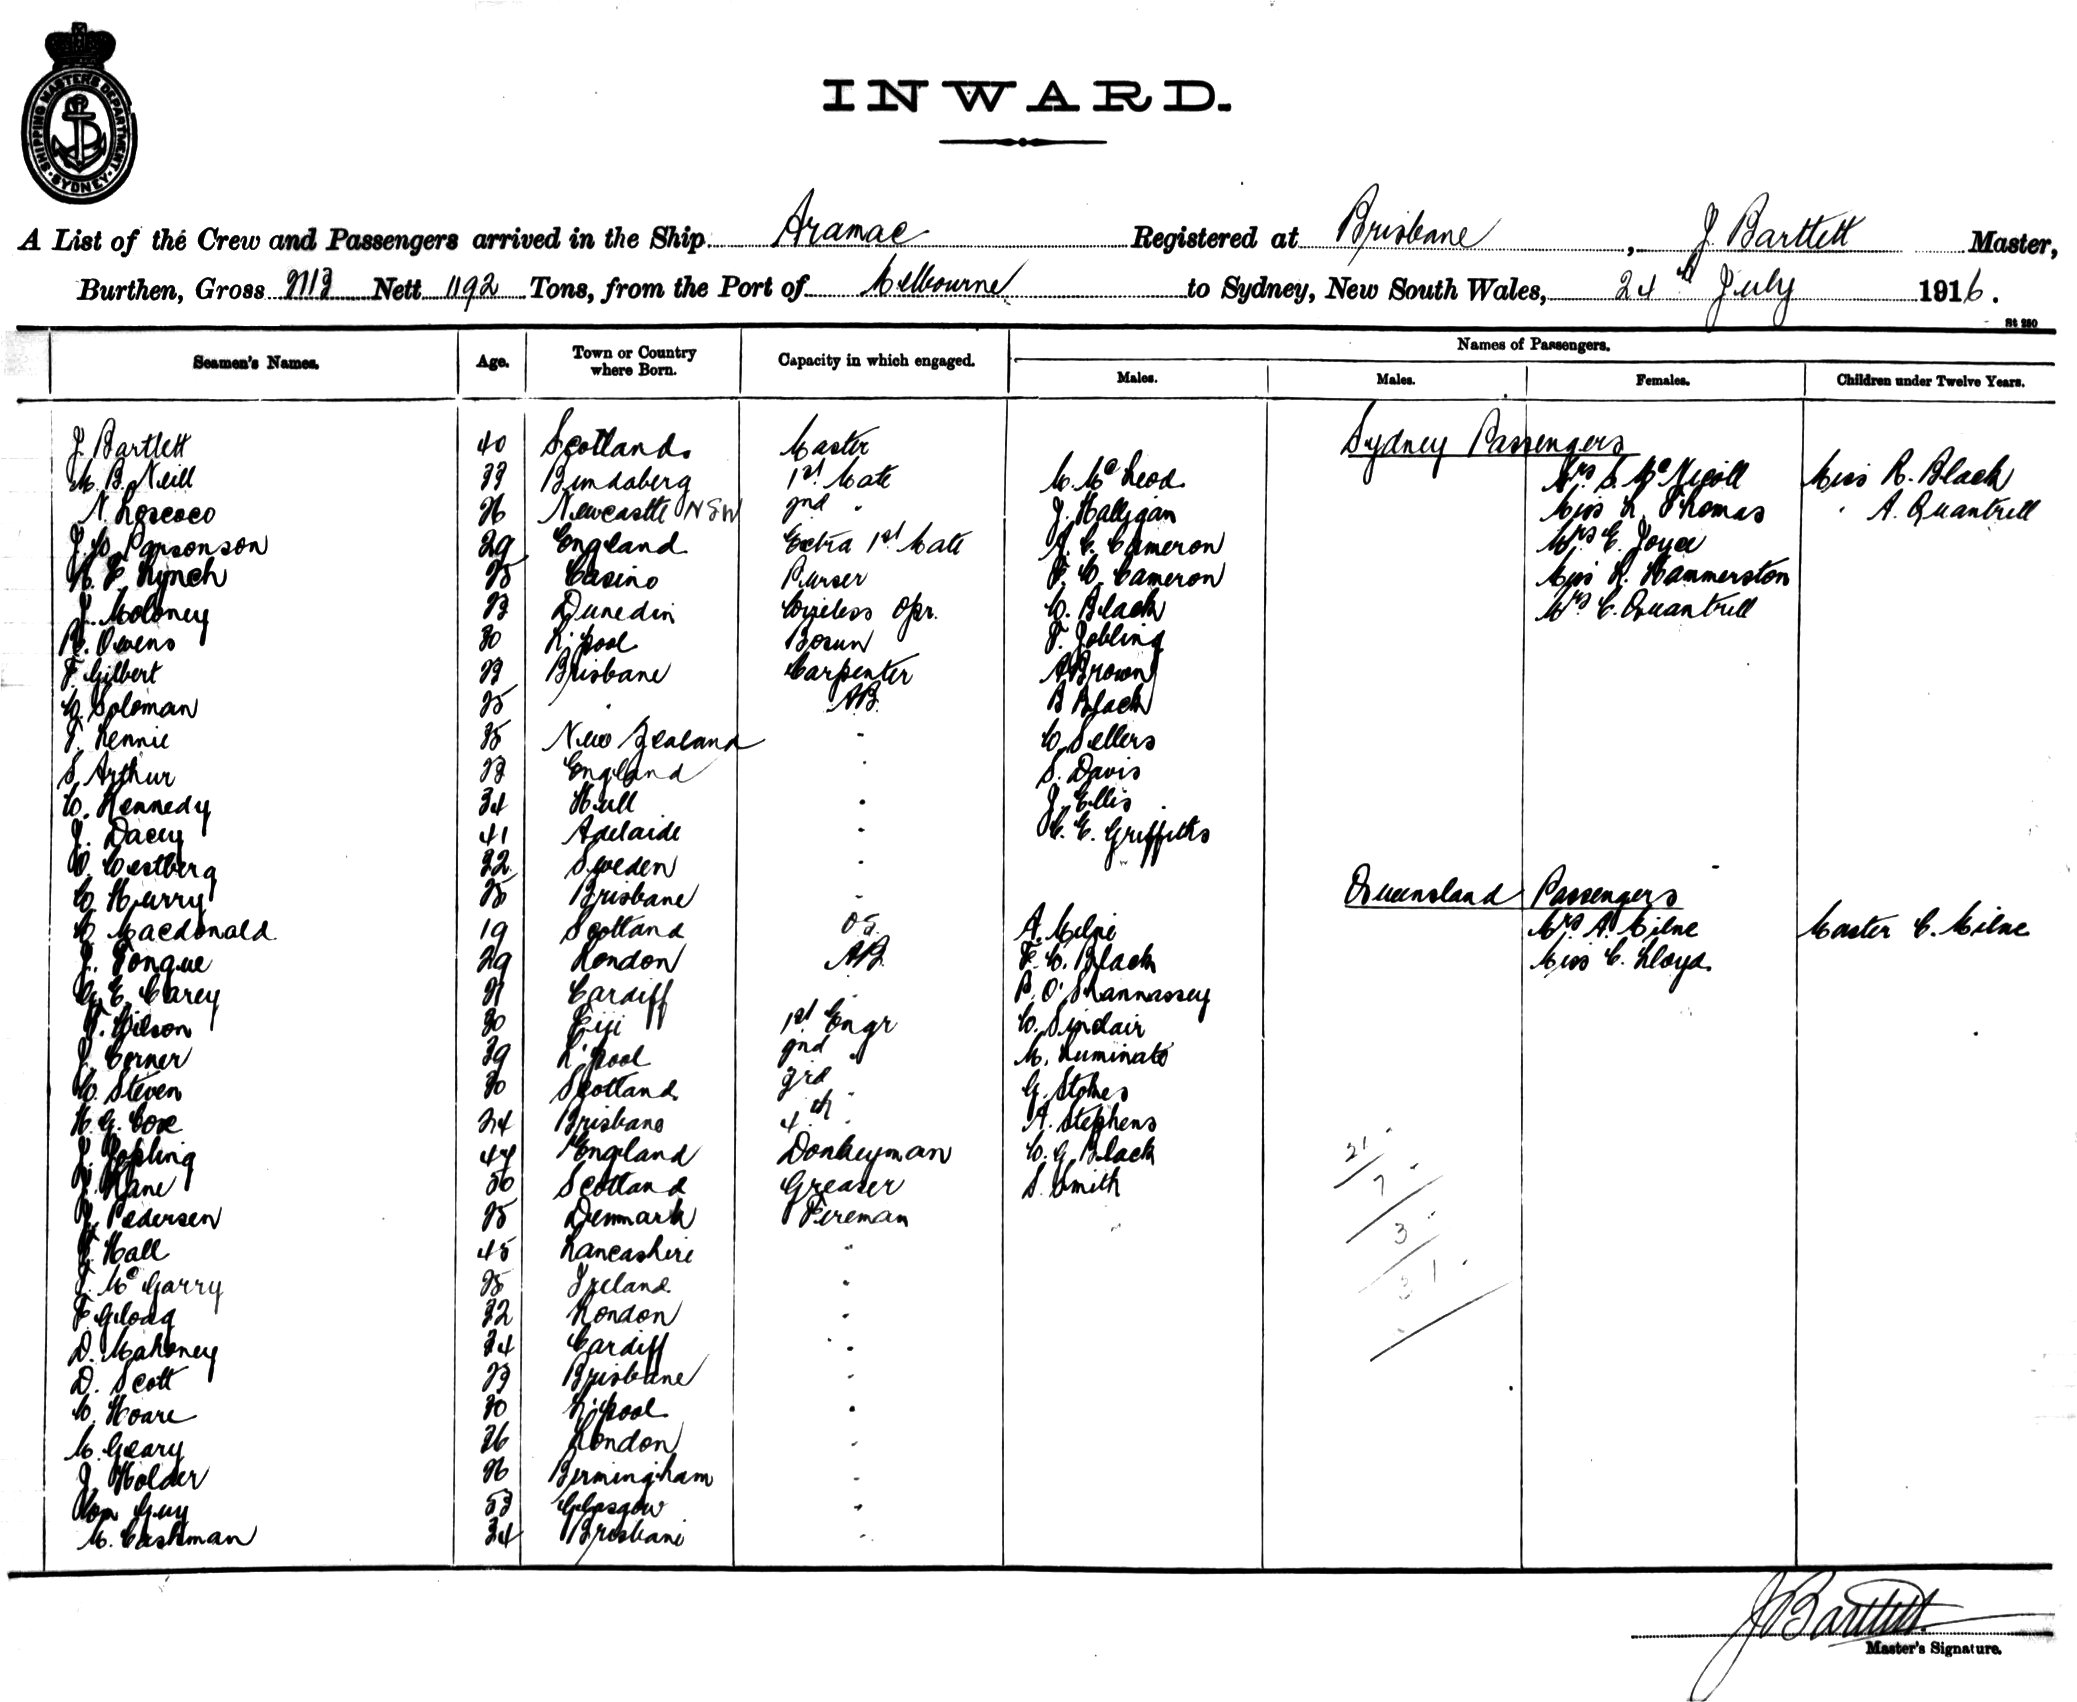 SHIPPING MASTERS DEPARTMENT · SYDNEY ·
INWARD.
A List of the Crew and Passengers arrived in the Ship Aramac Registered at Brisbane, J Bartlett Master,
Burthen, Gross 2113 Nett 1192 Tons, from the Port of Melbourne to Sydney, New South Wales, 24th July 1916.
St 280
Seamen's Names. Age. Town or Country where Born. Capacity in which engaged. Names of Passengers.
Males. Males. Females. Children under Twelve Years.
Sydney Passengers
J. Bartlett 40 Scotland Master
M. B. Neill 33 Bundaberg 1st Mate M. McLeod Mrs S. McNicoll Miss R. Black
N. 26 Newcastle NSW 2nd " J. Halligan Miss L. Thomas " A. Quantrill
J. W. Parsonson 29 England Extra 1st Mate J. C. Cameron Mrs E. Joyce
H. E. Lynch 25 Casino Purser F. W. Cameron Miss H. Hammerston
J. Moloney 23 Dunedin Wireless Opr. W. Black Mrs C. Quantrill
R. Owens 30 L'pool Bosun F. Jobling
F. Gilbert 23 Brisbane Carpenter A Brown
W. Soloman 25 " AB. B Black
F. Rennie 35 New Zealand " W. Sellers
S. Arthur 23 England " S. Davis
W. Kennedy 34 Hull " J. Ellis
J. Dacey 41 Adelaide " C. E. Griffiths
O. Westberg 22 Sweden "
W. Hurry 25 Brisbane "
Queensland Passengers
W. Macdonald 19 Scotland OS. A. Milne Mrs A. Milne Master C. Milne
J. Tongue 29 London AB. F. W. Black Miss C. Lloyd
G. E. Carey 21 Cardiff " P. O'Shannassey
T. Wilson 30 Fiji 1st Engr W. Sinclair
J. Corner 39 L'pool 2nd " M. Luminato
W. Steven 30 Scotland 3rd " G. Stokes
H. G. Cox 24 Brisbane 4th " A. Stephens
J. Jopling 47 England Donkeyman W. G. Black
J. Kane 50 Scotland Greaser S. Smith
J. Pedersen 25 Denmark Fireman
Hall 45 Lancashire "
J. McGarry 25 Ireland "
F. Gloag 32 London "
D. Mahoney 34 Cardiff "
D. Scott 23 Brisbane "
W. Hoare 30 L'pool "
M. Geary 36 London "
J. Holder 26 Birmingham "
Wm Guy 53 Glasgow "
M. Cashman 34 Brisbane "
21
7
3
31
J Bartlett
Master's Signature.